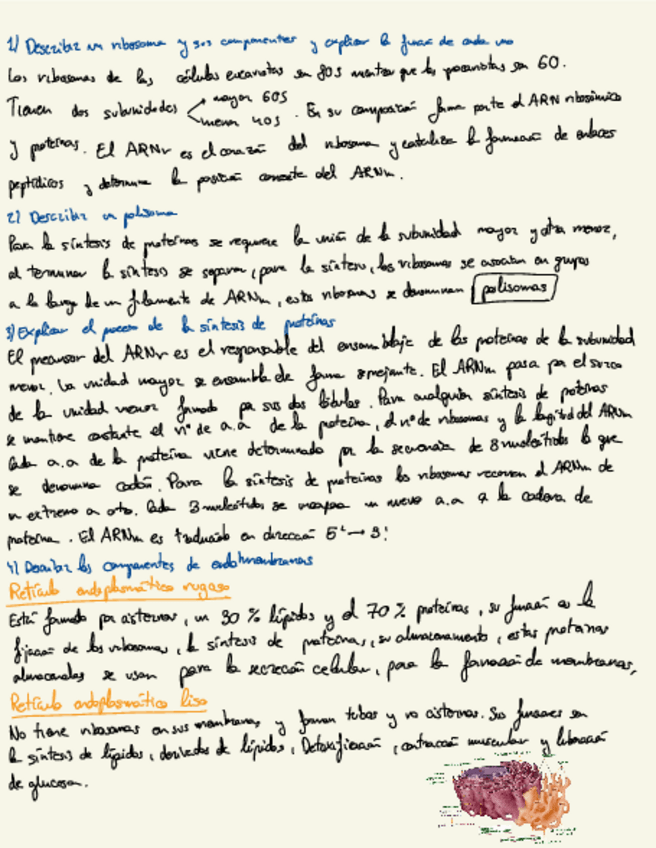 1) Describir un ribosoma y sus componentes y explicar la función de cada uno
Los ribosomas de las células eucariotas son 80s mientras que las procariotas son 60.
Tienen dos subunidades mayor 60S
menor 40s . En su composición forma parte el ARN ribosómico
y proteínas. El ARNr es el corazón del ribosoma y cataliza la formación de enlaces
peptídicos y determina la posición correcta del ARNm.
2) Describir un polisoma
Para la síntesis de proteínas se requiere la unión de la subunidad mayor y otra menor,
al terminar la síntesis se separan, para la síntesis, los ribosomas se asocian en grupos
a lo largo de un filamento de ARNm, estos ribosomas se denominan polisomas
3) Explicar el proceso de la síntesis de proteínas
El precursor del ARNr es el responsable del ensamblaje de las proteínas de la subunidad
menor. La unidad mayor se ensambla de forma semejante. El ARNm pasa por el surco
de la unidad menor formado por sus dos lóbulos. Para cualquier síntesis de proteínas
se mantiene constante el nº de a.a de la proteína, el nº de ribosomas y la longitud del ARNm
Cada a.a de la proteína viene determinado por la secuencia de 3 nucleótidos lo que
se denomina codón. Para la síntesis de proteínas los ribosomas recorren el ARNm de
un extremo a otro. Cada 3 nucleótidos se incorpora un nuevo a.a a la cadena de
proteína. El ARNm es traducido en dirección 5' → 3'
4) Describir los componentes de endomembranas
Retículo endoplasmático rugoso
Está formado por cisternas, un 30 % lípidos y el 70 % proteínas, su función es la
fijación de los ribosomas, la síntesis de proteínas, su almacenamiento, estas proteínas
almacenadas se usan para la secreción celular, para la formación de membranas,
Retículo endoplasmático liso
No tiene ribosomas en sus membranas y forman tubos y no cisternas. Sus funciones son
la síntesis de lípidos, derivados de lípidos, Detoxificación, contracción muscular y liberación
de glucosa.